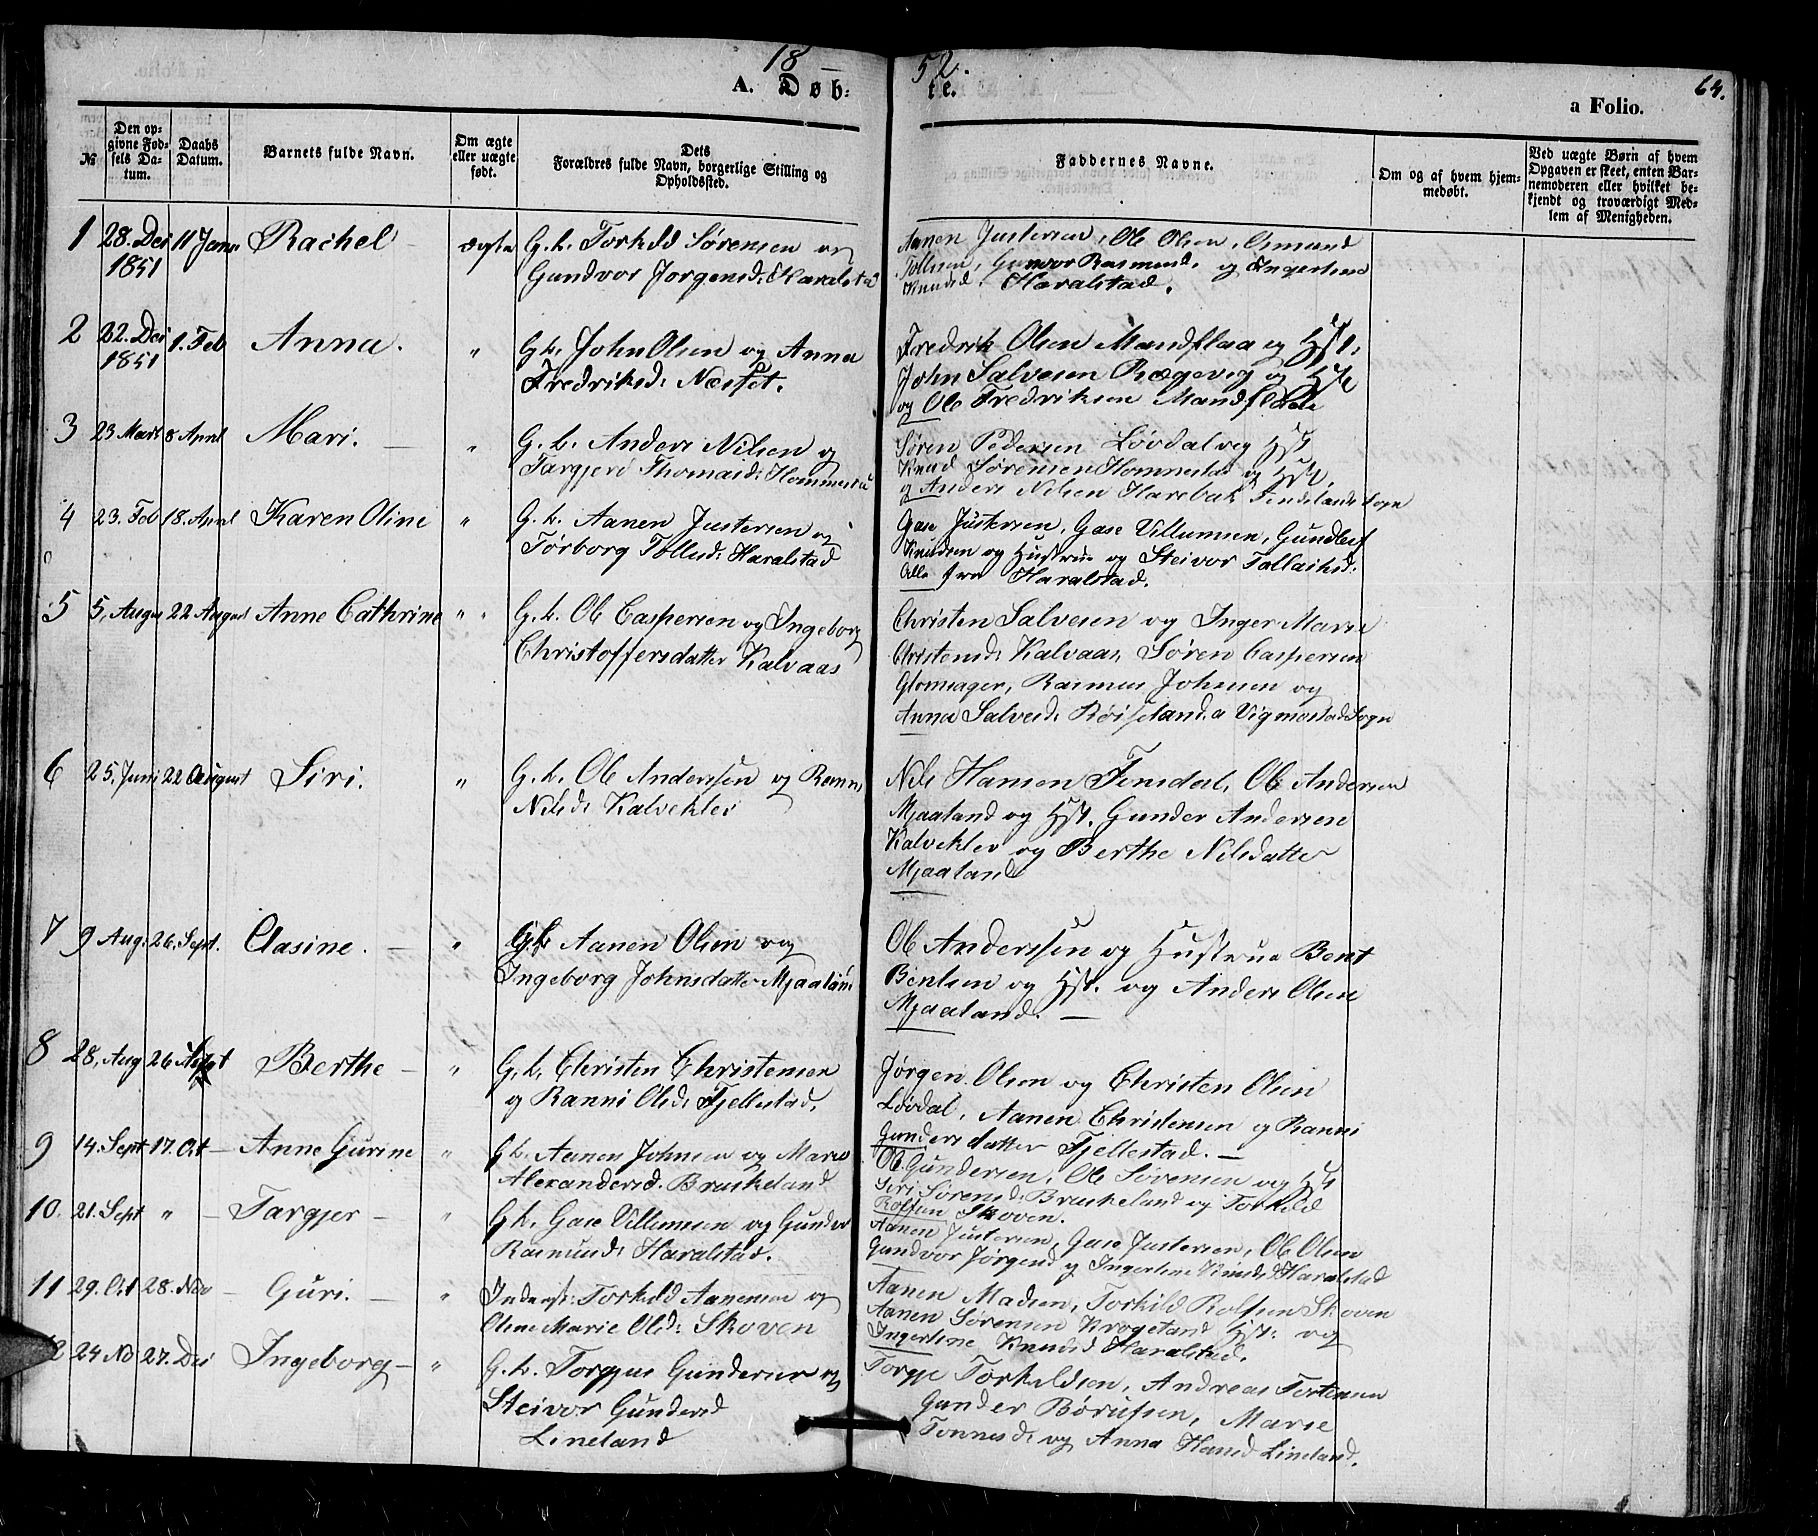 18 52.
A. Døb- te.
64.
a Folio.
№
Den op-
givne Fød-
sels Da-
tum.
Daabs
Datum.
Barnets fulde Navn.
Om ægte
eller uægte
født.
Dets
Forældres fulde Navn, borgerlige Stilling og
Opholdssted.
Faddernes Navne.
Om og af hvem hjem-
medøbt.
Ved uægte Børn af hvem
Opgaven er skeet, enten Bar-
nemoderen eller hvilket be-
kjendt og troværdigt Med-
lem af Menigheden.
1 28. Dec 11 Janu Rachel ægte G. k. Torkild Sørensen og
1851 Gundvor Jorgensd: Haralstad
Aanen Justersen, Ole Olsen, Osmund
Tollisen, Gunvor Rasmusd. og Ingerline
Knudsd. Haralstad.
2 22. Dec 1. Feb Anna. " G. k. John Olsen og Anna
1851 Fredriksd: Næsset.
Fredrik Olsen Mandflaa og Hst.
John Salvesen Rægevig og Hst
og Ole Fredriksen Mandflaa
3 23 Marts 8 April Mari. " G. k. Anders Nilsen og
Targjerd Thomasd: Hommestad
Søren Pedersen Løvdal og Hst
Knud Sørensen Homnestad og Hst.
og Anders Nilsen Harebak Finslands Sogn
4 23. Feb 18. April Karen Oline " G. k. Aanen Justersen og
Torborg Tollsd: Haralstad
Gase Justersen, Gase Villumsen, Gundleif
Knudsen og Hustrue og Steivor Tollachsd.
Alle fra Haralstad.
5 5. Augu 22 August Anne Cathrine " G. k. Ole Caspersen og Ingeborg
Christoffersdatter Kalvaas
Christen Salvesen og Inger Marie
Christensd: Kalvaas, Søren Caspersen
Glomsager, Rasmus Johnsen og
Anna Salvesd: Røiseland a Vigmostad Sogn
6 25. Juni 22 August Siri. " G. k. Ole Anderssen og Ranni
Nilsd: Kalveklev
Nils Hansen Finsdal, Ole Andersen
Mjaaland og Hst. Gunder Andersen
Kalveklev og Berthe Nilsdatter
Mjaaland
7 9 Aug: 26. Sept. Clasine. " G. k. Aanen Olsen og
Ingeborg Johnsdatter Mjaaland
Ole Anderssen og Hustrue Bent
Bentsen og Hst. og Anders Olsen
Mjaaland.
8 28. Aug 26 Sept Berthe " G. k. Christen Christensen
og Ranni Olsd: Fjellestad.
Jørgen Olsen og Christen Olsen
Løvdal, Aanen Christensen og Ranni
Gundersdatter Fjellestad.
9 14. Sept 17. Oct Anne Gurine " G. k. Aanen Johnsen og Marie
Alexandersd. Bruskeland
Ole Gundersen, Ole Sørensen og Hst
Siri Sørensd: Bruskeland og Torkild
Rolfsen Skoven.
10. 21. Sept " Targjer " G. k. Gase Villumsen og Gundvor
Rasmusd: Haralstad.
Aanen Justersen, Gase Justersen, Ole Olsen
Gundvor Jørgensd og Ingerline Knudsd Haralstad
11 29. Oct 28. Nov Guri. " Inderst: Torkild Aanensen og
Olene Marie Olsd: Skoven
Aanen Madsen, Torkild Rolfsen Skoven
Aanen Sørensen Krogeland Hst: og
Ingerline Knudsd Haralstad.
12 24 No 27. Dec Ingeborg " G. k. Torgjus Gundersen og
Steivor Gundersd
Lineland
Torge Torkildsen, Andreas Tortensen
Gunder Børufsen, Marie
Tønnesd: og Anna Hansd Lineland.